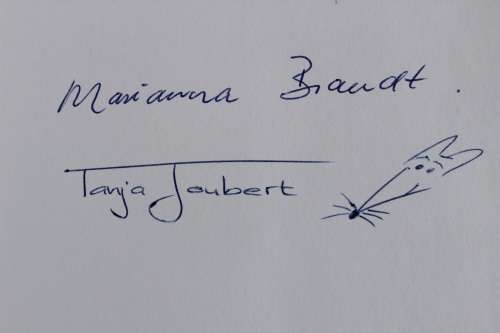 Marianna Brandt.
Tanja Joubert